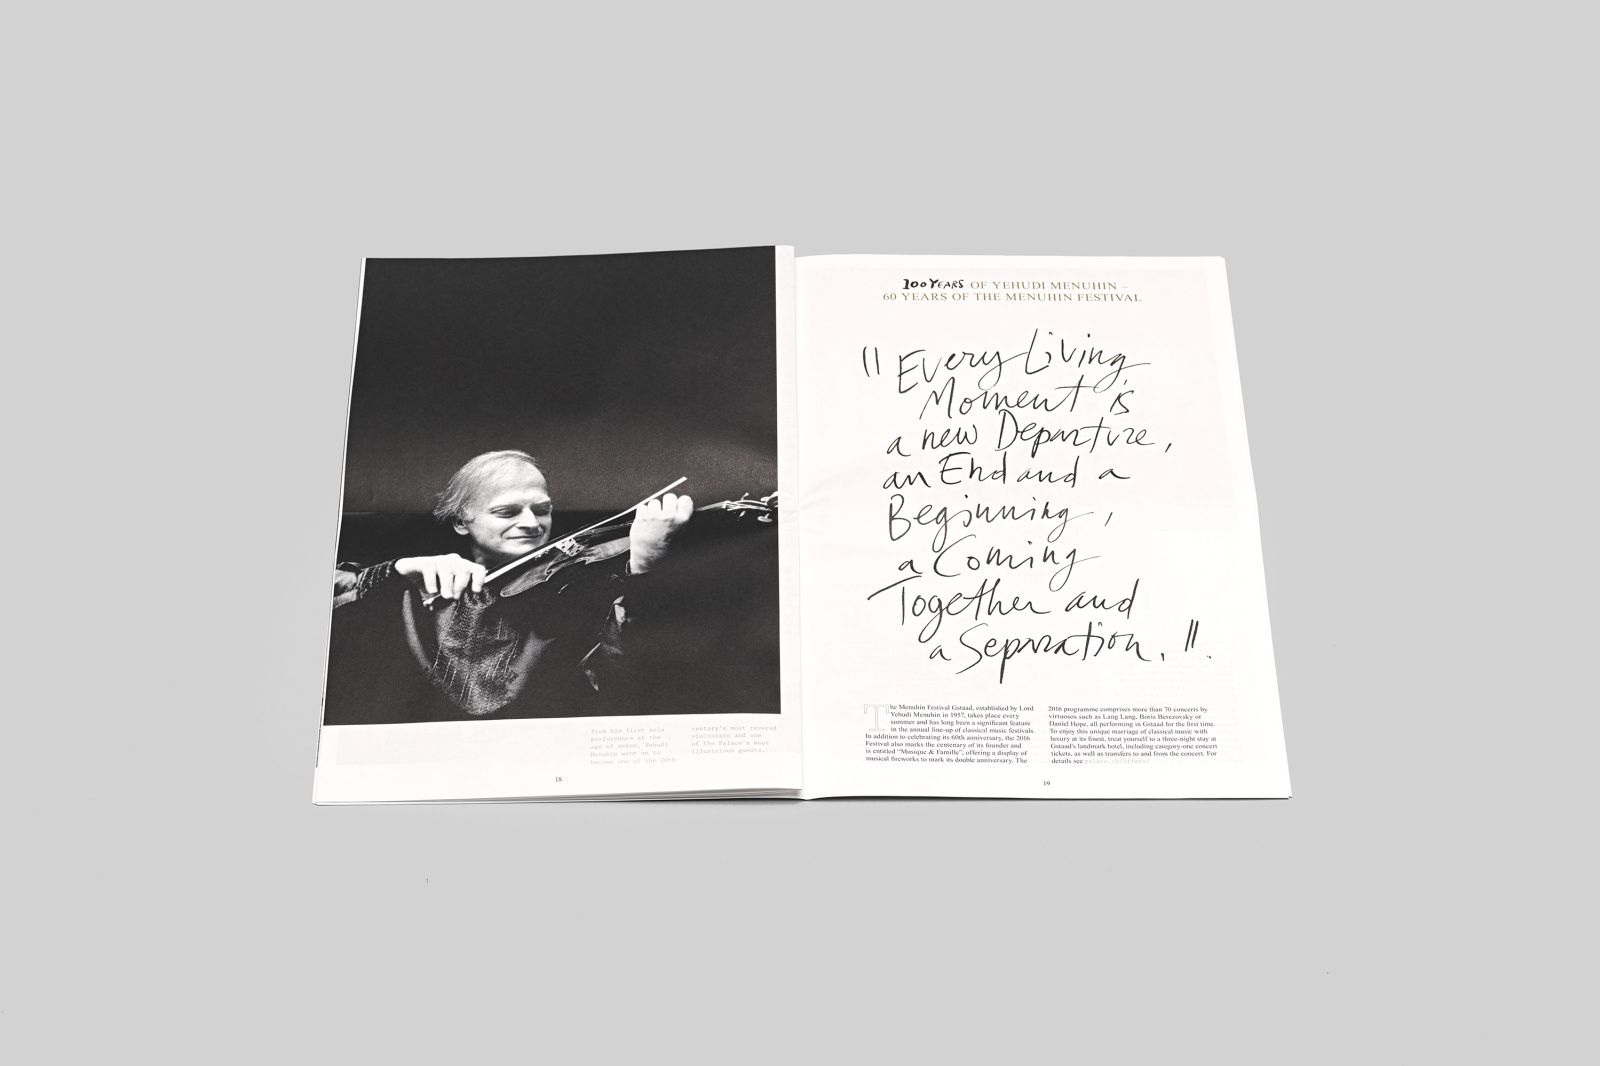 From his first solo
performance at the
age of seven, Yehudi
Menuhin went on to
become one of the 20th
century's most revered
violinists and one
of the Palace's most
illustrious guests.
18
100 YEARS OF YEHUDI MENUHIN –
60 YEARS OF THE MENUHIN FESTIVAL
"Every Living
Moment is
a new Departure,
an End and a
Beginning,
a Coming
Together and
a Separation."
The Menuhin Festival Gstaad, established by Lord
Yehudi Menuhin in 1957, takes place every
summer and has long been a significant feature
in the annual line-up of classical music festivals.
In addition to celebrating its 60th anniversary, the 2016
Festival also marks the centenary of its founder and
is entitled "Musique & Famille", offering a display of
musical fireworks to mark its double anniversary. The
2016 programme comprises more than 70 concerts by
virtuosos such as Lang Lang, Boris Berezovsky or
Daniel Hope, all performing in Gstaad for the first time.
To enjoy this unique marriage of classical music with
luxury at its finest, treat yourself to a three-night stay at
Gstaad's landmark hotel, including category-one concert
tickets, as well as transfers to and from the concert. For
details see palace.ch/offers/
19